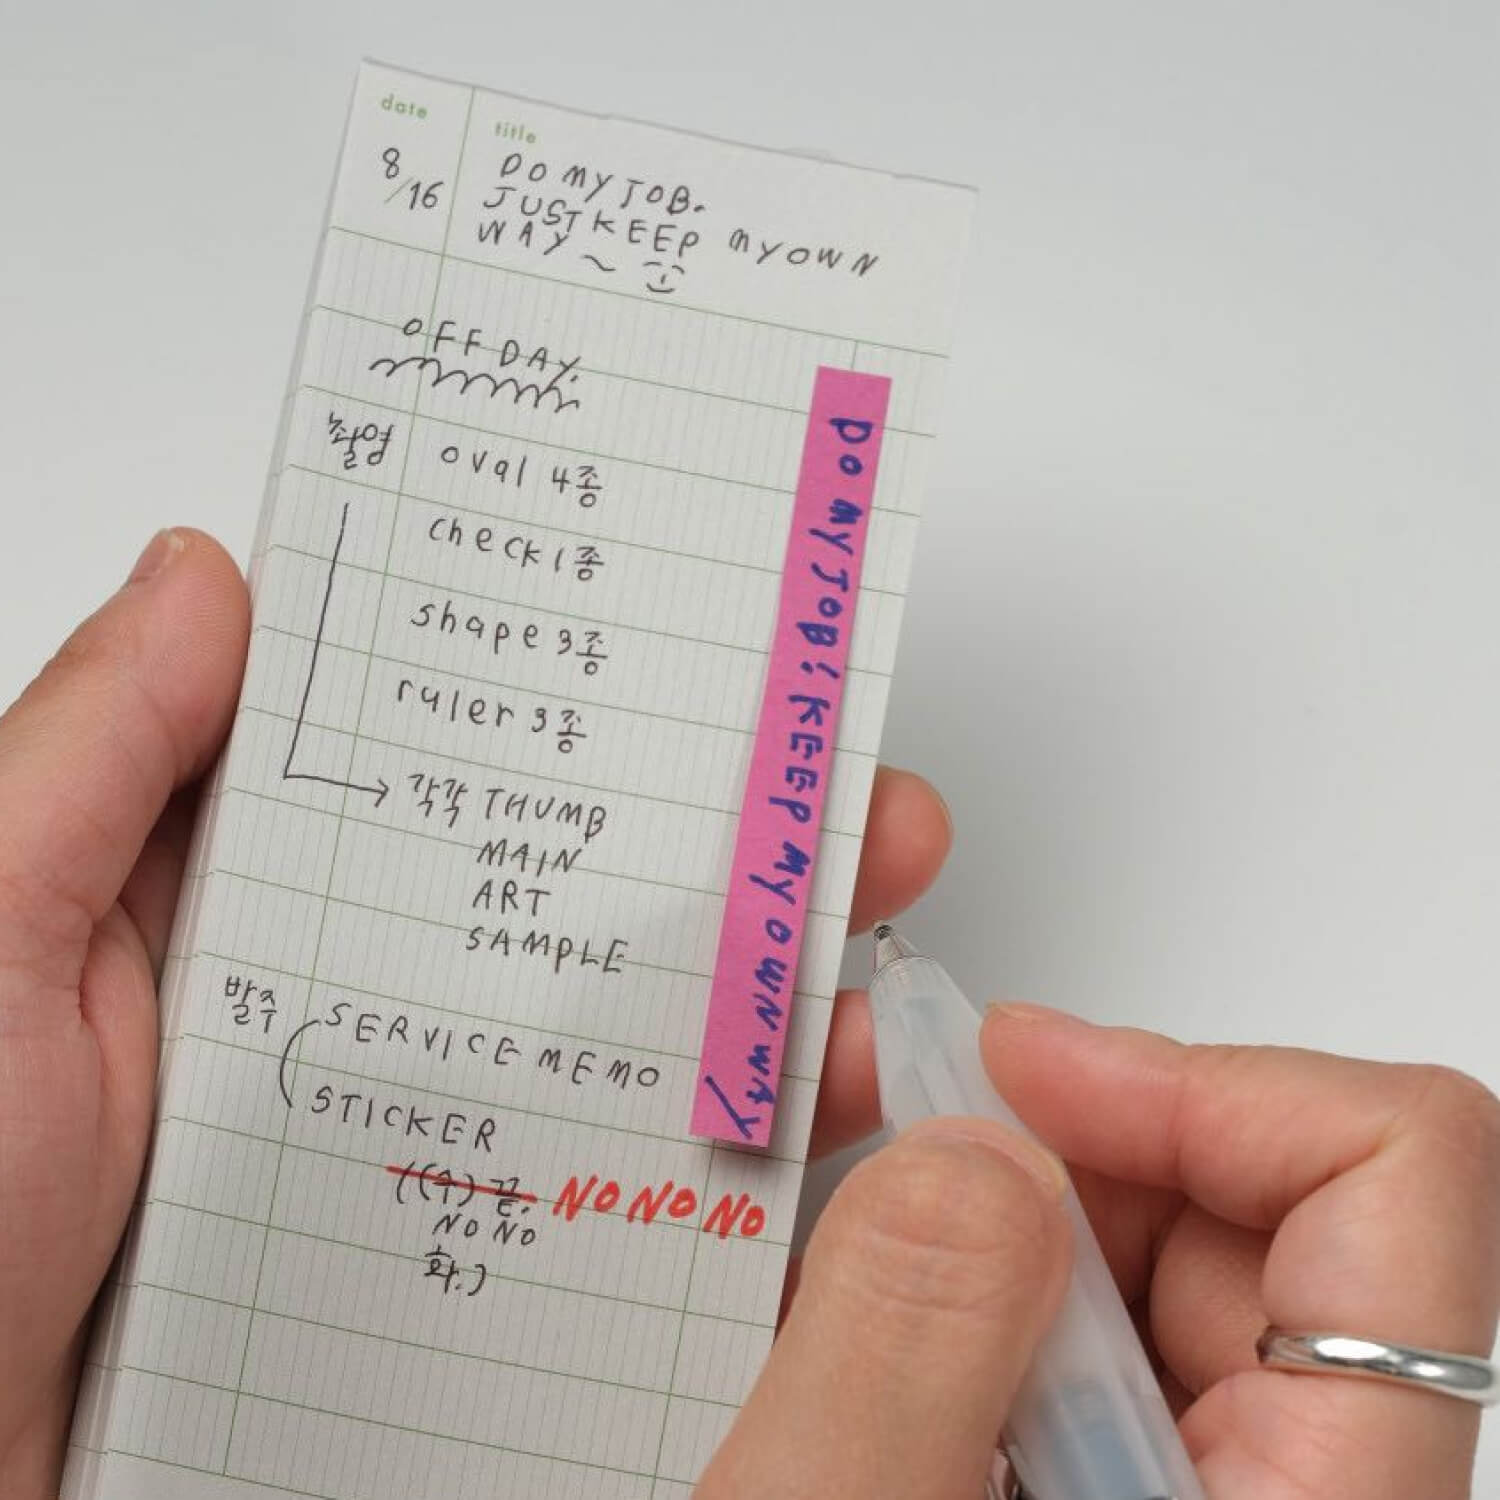 date
title
8/16
DO MY JOB.
JUST KEEP MY OWN
WAY~
OFF DAY.
촬영 oval 4종
check 1종
shape 3종
ruler 3종
각각 THUMB
MAIN
ART
SAMPLE
발주 SERVICE MEMO
STICKER
((수) 끝. NO NO NO
NO NO
화.)
DO MY JOB! KEEP MY OWN WAY